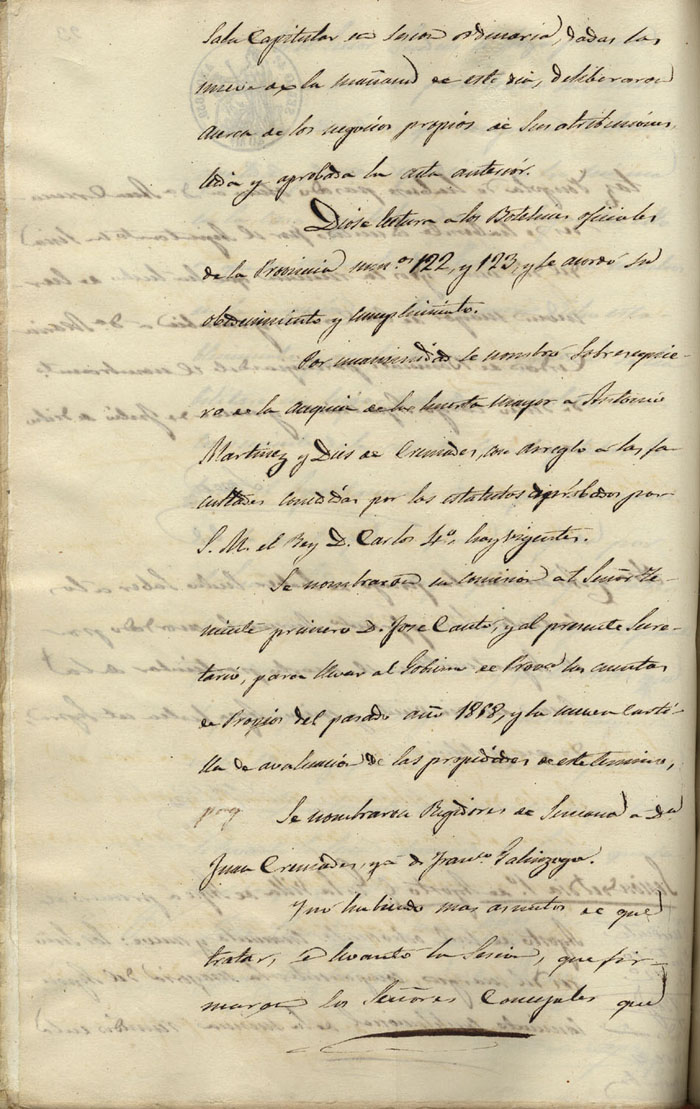 Sala Capitular en Sesion ordinaria, dadas las
nueve de la mañana de este dia, deliberaron
acerca de los negocios propios de sus atribuciones,
leida y aprobada la acta anterior.
Diose lectura a los Boletines oficiales
de la Provincia num.os 122, y 123, y se acordó su
obedecimiento y cumplimiento.
Por unanimidad se nombró Sobreacequie-
ro de la acequia de la huerta mayor a Antonio
Martinez y Dies de Cremades, con arreglo a las fa-
cultades concedidas por los estatutos aprobados por
S. M. el Rey D. Carlos 4º, hoy vigentes.
Se nombraron en comision al Señor Te-
niente primero D. Jose Cantó, y al presente Secre-
tario, para llevar al Gobierno de Prov.a las cuentas
de Propios del pasado año 1868, y la nueva Carti-
lla de avaluacion de las propiedades de este termino,
Se nombraron Regidores de Semana a Dn
Juan Cremades, y a D. Fran.co Galinzoga.
Y no habiendo mas asuntos de que
tratar, se levantó la Sesion, que fir-
maron los Señores Concejales que